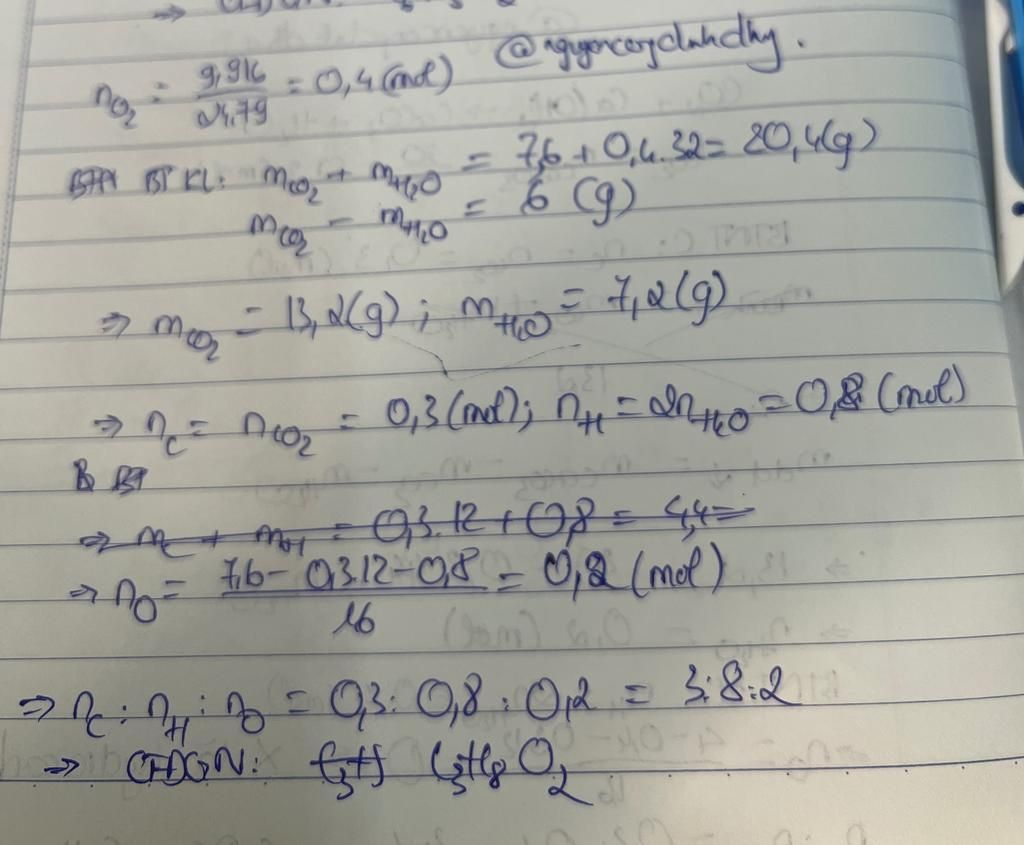 ⇒ CTĐGN:
n_O₂ = 9,916/24,79 = 0,4 (mol)
BT KL: m_CO₂ + m_H₂O = 7,6 + 0,4.32 = 20,4(g)
m_CO₂ - m_H₂O = 6 (g)
⇒ m_CO₂ = 13,2(g) ; m_H₂O = 7,2(g)
⇒ n_C = n_CO₂ = 0,3 (mol); n_H = 2n_H₂O = 0,8 (mol)
B BT
⇒ m_C + m_H = 0,3.12 + 0,8 = 4,4
⇒ n_O = (7,6 - 0,3.12 - 0,8)/16 = 0,2 (mol)
⇒ n_C : n_H : n_O = 0,3 : 0,8 : 0,2 = 3:8:2
⇒ CTĐGN: C₃H C₃H₈O₂